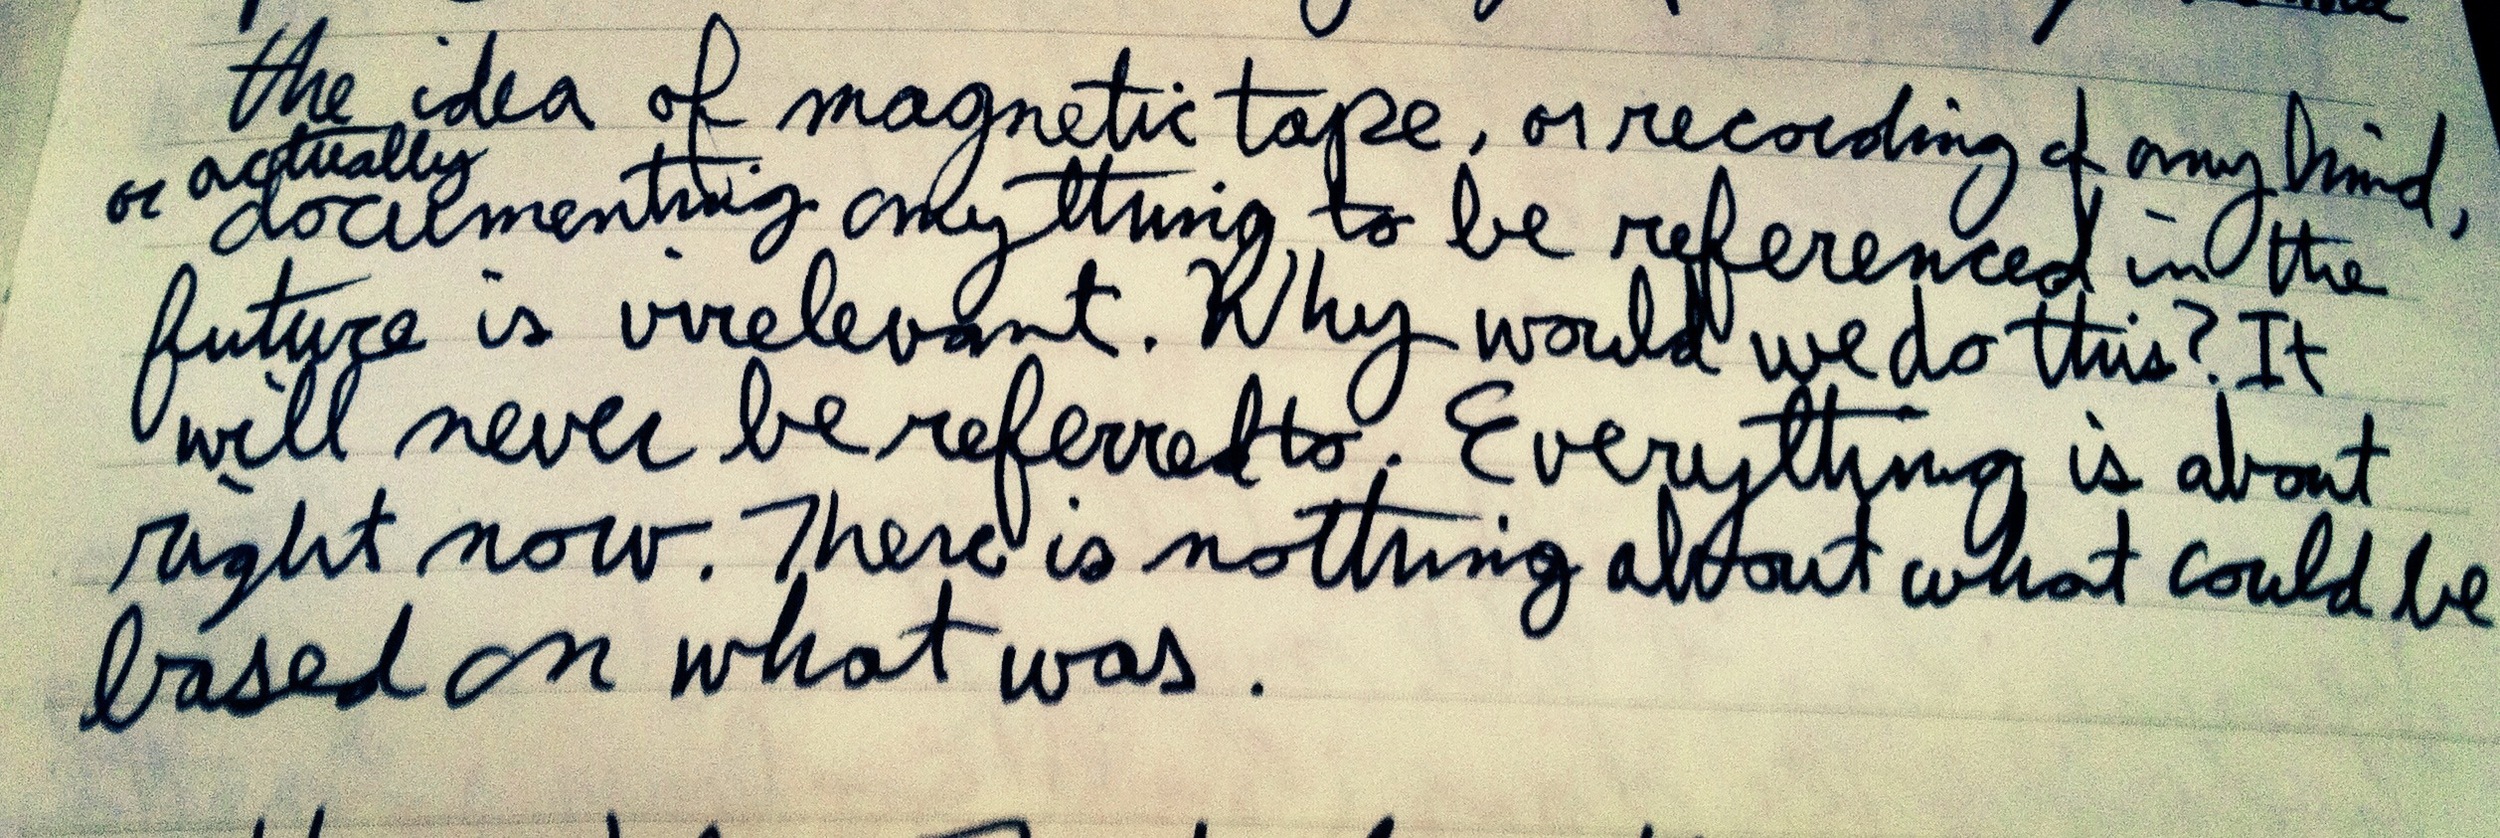 the idea of magnetic tape, or recording of any kind,
or actually documenting anything to be referenced in the
future is irrelevant. Why would we do this? It
will never be referred to. Everything is about
right now. There is nothing about what could be
based on what was.